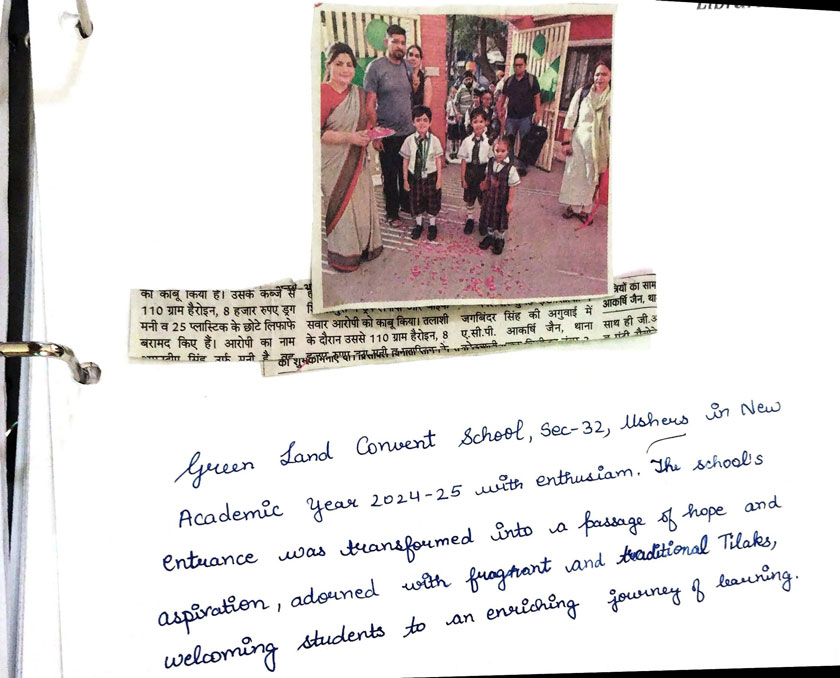 का काबू किया है। उसके कब्जे से
110 ग्राम हैरोइन, 8 हजार रुपए ड्रग
मनी व 25 प्लास्टिक के छोटे लिफाफे
बरामद किए हैं। आरोपी का नाम
सवार आरोपी को काबू किया। तलाशी
के दौरान उससे 110 ग्राम हैरोइन, 8
जगबिंदर सिंह की अगुवाई में
ए.सी.पी. आकर्षि जैन, थाना
त्रियों का साम
आकर्षि जैन, था
साथ ही जी.अ
Green Land Convent School, Sec-32, Ushers in New
Academic Year 2024-25 with enthusiam. The school's
entrance was transformed into a passage of hope and
aspiration, adorned with fragrant and traditional Tilaks,
welcoming students to an enriching journey of learning.